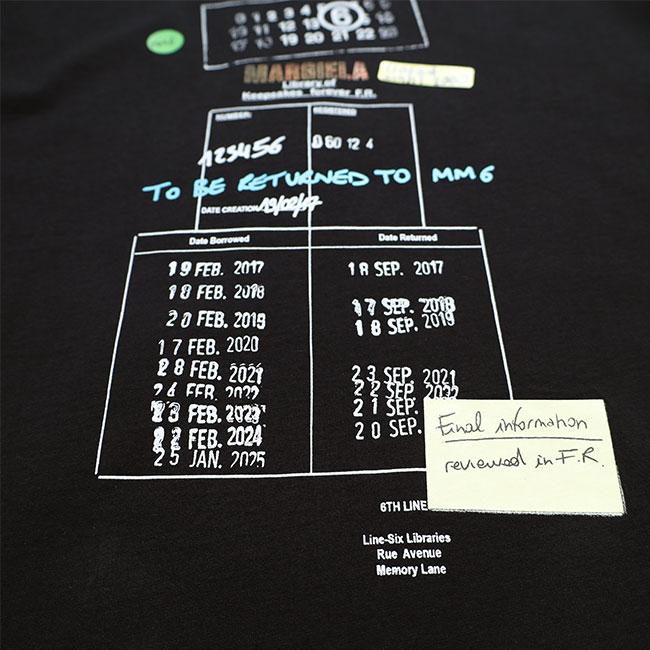 0 1 2 3 4 5 6
10 11 12 13
17 18 19 20 21 22 23
MARGIELA
Library of
Keepsakes forever F.R.
NUMBER:
REGISTERED
123456
060 12 4
TO BE RETURNED TO MM6
DATE CREATION
19/02/17
Date Borrowed
Date Returned
19 FEB. 2017
18 SEP. 2017
18 FEB. 2018
17 SEP. 2018
20 FEB. 2019
18 SEP. 2019
17 FEB. 2020
28 FEB. 2021
23 SEP. 2021
24 FEB. 2022
22 SEP. 2022
23 FEB. 2023
21 SEP.
22 FEB. 2024
20 SEP.
25 JAN. 2025
Final information
reviewed in F.R.
6TH LINE
Line-Six Libraries
Rue Avenue
Memory Lane